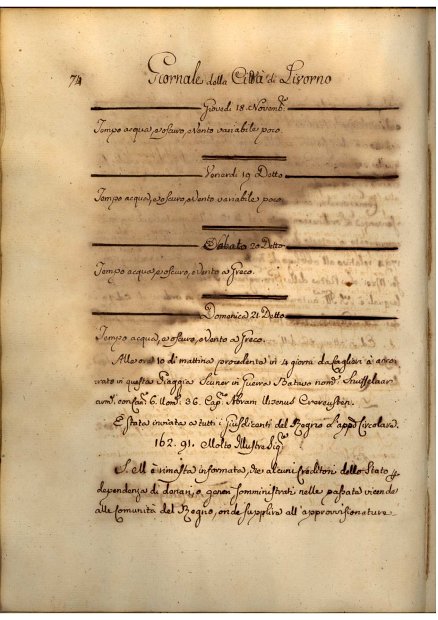 74 Giornale della Città di Livorno
Giovedi 18 Novemb.
Tempo acqua, e oscuro, e Vento variabile poco.
Venerdi 19 Detto
Tempo acqua, e oscuro, e Vento variabile poco.
Sabato 20 Detto
Tempo acqua, e oscuro, e Vento a Greco.
Domenica 21 Detto
Tempo acqua, e oscuro, e Vento a Greco.
Alle ore 10 di mattina proveduta in 4 giorni da Caglieri è arri-
vato in questa Piaggia Scuner in Guerra Batavo nom. Schuffelaar
arm. con Can. 6. Uom. 36. Cap. Abram
È stata inviata a tutti i Giusdicenti del Regno l'app. Circolare.
162. 91. Molto Illustre Sig.
S. M. è rimasta informata, che alcuni Creditori dello Stato
dependenza di denari, o generi somministrati nelle passate vicende
alle Comunità del Regno, onde supplire all'approvvisionature